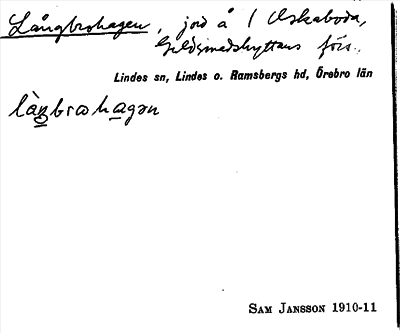 Långbrohagen, jord å 1 Oskaboda,
Guldsmedshyttans förs.
Lindes sn, Lindes o. Ramsbergs hd, Örebro län
làŋbrωhagən
SAM JANSSON 1910-11